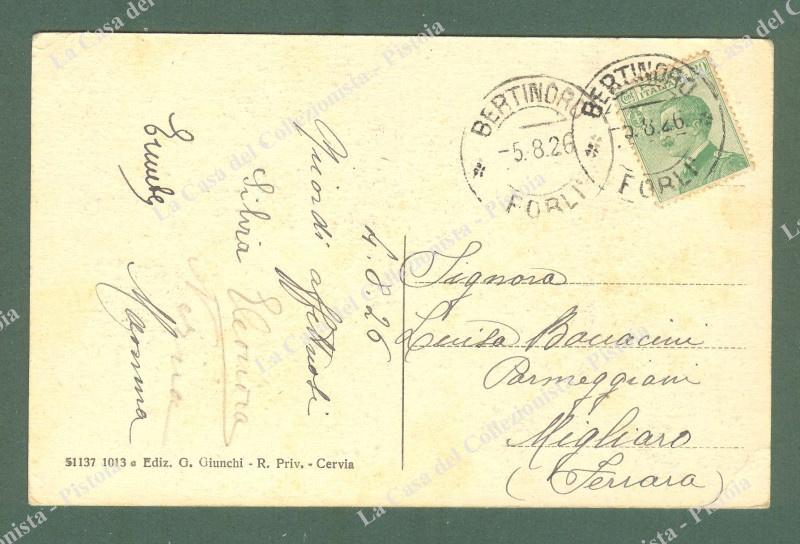 BERTINORO
-5.8.26
FORLI'
BERTINORO
-5.8.26
FORLI'
4.8.26
Ricordi affettuosi
Silvia Eleonora
Mamma
Signora
Luisa Bonacini
Parmeggiani
Migliaro
(Ferrara)
51137 1013 a Ediz. G. Giunchi - R. Priv. - Cervia
La Casa del Collezionista - Pistoia